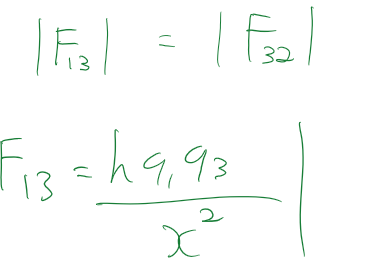 |F₁₃| = |F₃₂|
F₁₃ = h q₁ q₃ / x² |